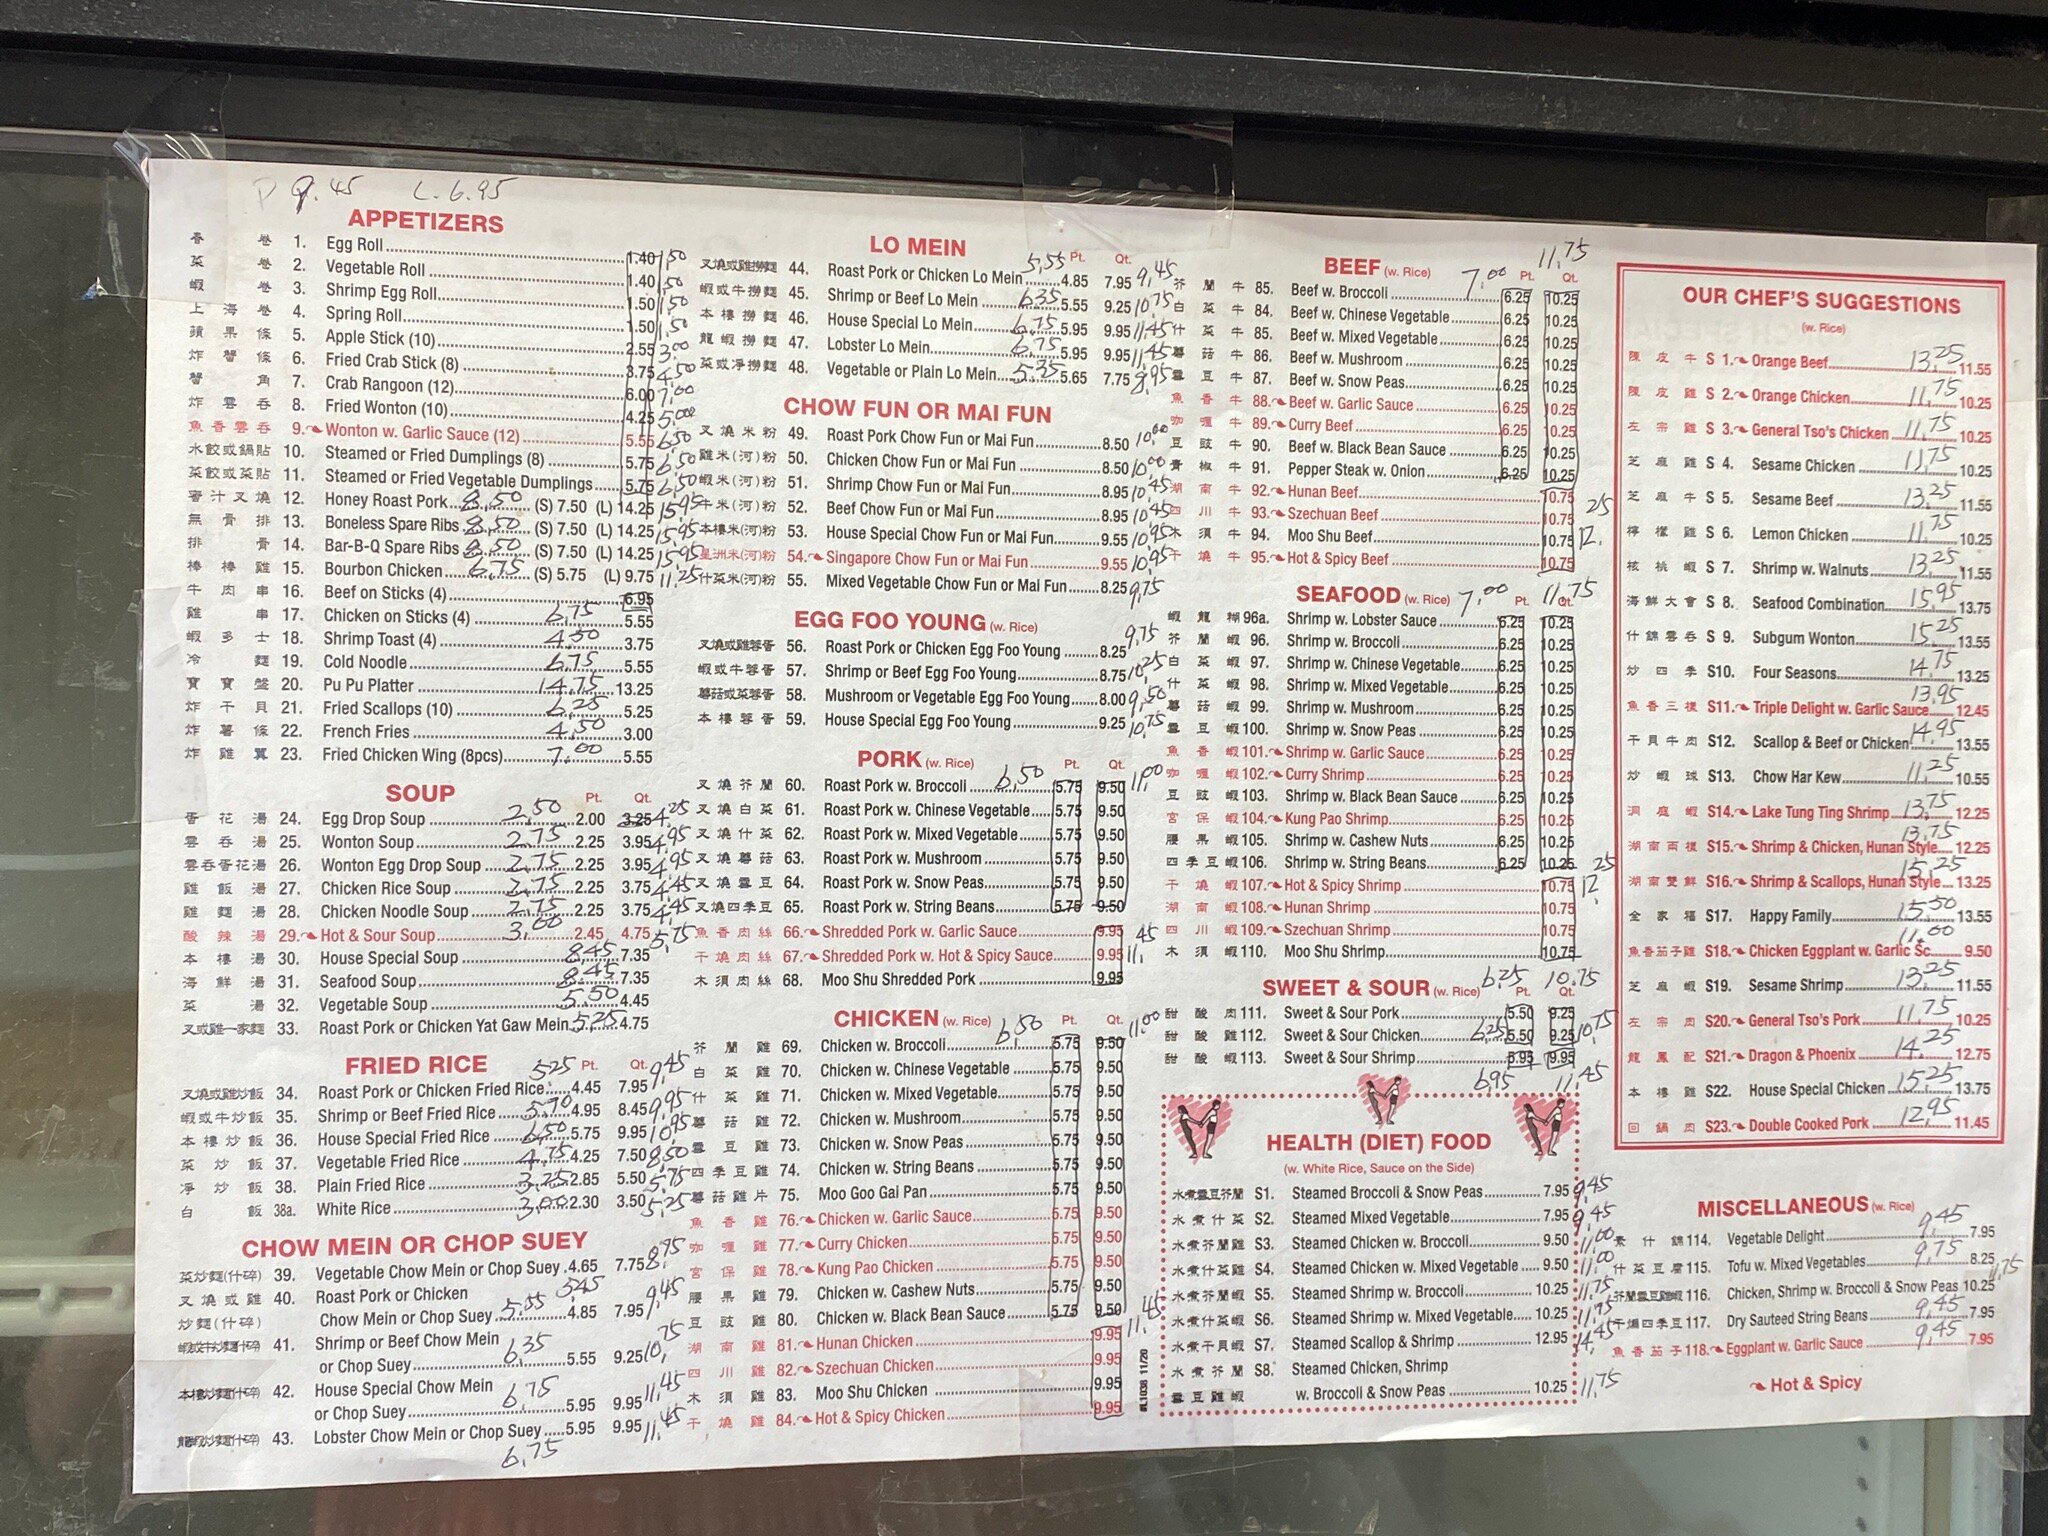 P 9.45 L. 6.95
APPETIZERS
春卷 1. Egg Roll 1.40 1.50
菜卷 2. Vegetable Roll 1.40 1.50
蝦卷 3. Shrimp Egg Roll 1.50 1.50
上海卷 4. Spring Roll 1.50 1.50
蘋果條 5. Apple Stick (10) 2.55 3.00
炸蟹條 6. Fried Crab Stick (8) 3.75 4.50
蟹角 7. Crab Rangoon (12) 6.00 7.00
炸雲吞 8. Fried Wonton (10) 4.25 5.00
魚香雲吞 9. Wonton w. Garlic Sauce (12) 5.55 6.50
水餃或鍋貼 10. Steamed or Fried Dumplings (8) 5.75 6.50
菜餃或菜貼 11. Steamed or Fried Vegetable Dumplings 5.75 6.50
蜜汁叉燒 12. Honey Roast Pork 8.50 (S) 7.50 (L) 14.25 15.95
無骨排 13. Boneless Spare Ribs 8.50 (S) 7.50 (L) 14.25 15.95
排骨 14. Bar-B-Q Spare Ribs 8.50 (S) 7.50 (L) 14.25 15.95
棒棒雞 15. Bourbon Chicken 6.75 (S) 5.75 (L) 9.75 11.25
牛肉串 16. Beef on Sticks (4) 6.95
雞串 17. Chicken on Sticks (4) 6.75 5.55
蝦多士 18. Shrimp Toast (4) 4.50 3.75
冷麵 19. Cold Noodle 6.75 5.55
寶寶盤 20. Pu Pu Platter 14.75 13.25
炸干貝 21. Fried Scallops (10) 6.25 5.25
炸薯條 22. French Fries 4.50 3.00
炸雞翼 23. Fried Chicken Wing (8pcs) 7.00 5.55
SOUP Pt. Qt.
蛋花湯 24. Egg Drop Soup 2.50 2.00 3.25 4.25
雲吞湯 25. Wonton Soup 2.75 2.25 3.95 4.95
雲吞蛋花湯 26. Wonton Egg Drop Soup 2.75 2.25 3.95 4.95
雞飯湯 27. Chicken Rice Soup 2.75 2.25 3.75 4.45
雞麵湯 28. Chicken Noodle Soup 2.75 2.25 3.75 4.45
酸辣湯 29. Hot & Sour Soup 3.00 2.45 4.75 5.75
本樓湯 30. House Special Soup 8.45 7.35
海鮮湯 31. Seafood Soup 8.45 7.35
菜湯 32. Vegetable Soup 5.50 4.45
叉或雞一家麵 33. Roast Pork or Chicken Yat Gaw Mein 5.25 4.75
FRIED RICE 5.25 Pt. Qt.
叉燒或雞炒飯 34. Roast Pork or Chicken Fried Rice 4.45 7.95 9.45
蝦或牛炒飯 35. Shrimp or Beef Fried Rice 5.70 4.95 8.45 9.95
本樓炒飯 36. House Special Fried Rice 6.50 5.75 9.95 10.95
菜炒飯 37. Vegetable Fried Rice 4.75 4.25 7.50 8.50
淨炒飯 38. Plain Fried Rice 3.25 2.85 5.50 5.75
白飯 38a. White Rice 3.00 2.30 3.50 5.25
CHOW MEIN OR CHOP SUEY
菜炒麵(什碎) 39. Vegetable Chow Mein or Chop Suey 4.65 7.75 8.95
5.45
叉燒或雞 40. Roast Pork or Chicken
炒麵(什碎) Chow Mein or Chop Suey 5.55 4.85 7.95 9.45
蝦或牛炒麵(什碎) 41. Shrimp or Beef Chow Mein
or Chop Suey 6.35 5.55 9.25 10.75
本樓炒麵(什碎) 42. House Special Chow Mein
or Chop Suey 6.75 5.95 9.95 11.45
龍蝦炒麵(什碎) 43. Lobster Chow Mein or Chop Suey 5.95 9.95 11.45
6.75
LO MEIN Pt. Qt.
叉燒或雞撈麵 44. Roast Pork or Chicken Lo Mein 5.55 4.85 7.95 9.45
蝦或牛撈麵 45. Shrimp or Beef Lo Mein 6.35 5.55 9.25 10.75
本樓撈麵 46. House Special Lo Mein 6.75 5.95 9.95 11.45
龍蝦撈麵 47. Lobster Lo Mein 6.75 5.95 9.95 11.45
菜或淨撈麵 48. Vegetable or Plain Lo Mein 5.35 5.65 7.75 8.95
CHOW FUN OR MAI FUN
叉燒米粉 49. Roast Pork Chow Fun or Mai Fun 8.50 10.00
雞米(河)粉 50. Chicken Chow Fun or Mai Fun 8.50 10.00
蝦米(河)粉 51. Shrimp Chow Fun or Mai Fun 8.95 10.45
牛米(河)粉 52. Beef Chow Fun or Mai Fun 8.95 10.45
本樓米(河)粉 53. House Special Chow Fun or Mai Fun 9.55 10.95
星洲米(河)粉 54. Singapore Chow Fun or Mai Fun 9.55 10.95
什菜米(河)粉 55. Mixed Vegetable Chow Fun or Mai Fun 8.25 9.75
EGG FOO YOUNG (w. Rice)
叉燒或雞蓉蛋 56. Roast Pork or Chicken Egg Foo Young 8.25 9.75
蝦或牛蓉蛋 57. Shrimp or Beef Egg Foo Young 8.75 10.25
蘑菇或菜蓉蛋 58. Mushroom or Vegetable Egg Foo Young 8.00 9.50
本樓蓉蛋 59. House Special Egg Foo Young 9.25 10.75
PORK (w. Rice) Pt. Qt.
叉燒芥蘭 60. Roast Pork w. Broccoli 6.50 5.75 9.50 11.00
叉燒白菜 61. Roast Pork w. Chinese Vegetable 5.75 9.50
叉燒什菜 62. Roast Pork w. Mixed Vegetable 5.75 9.50
叉燒蘑菇 63. Roast Pork w. Mushroom 5.75 9.50
叉燒雪豆 64. Roast Pork w. Snow Peas 5.75 9.50
叉燒四季豆 65. Roast Pork w. String Beans 5.75 9.50
魚香肉絲 66. Shredded Pork w. Garlic Sauce 9.95 11.45
干燒肉絲 67. Shredded Pork w. Hot & Spicy Sauce 9.95
木須肉絲 68. Moo Shu Shredded Pork 9.95
CHICKEN (w. Rice) 6.50 Pt. Qt. 11.00
芥蘭雞 69. Chicken w. Broccoli 5.75 9.50
白菜雞 70. Chicken w. Chinese Vegetable 5.75 9.50
什菜雞 71. Chicken w. Mixed Vegetable 5.75 9.50
蘑菇雞 72. Chicken w. Mushroom 5.75 9.50
雪豆雞 73. Chicken w. Snow Peas 5.75 9.50
四季豆雞 74. Chicken w. String Beans 5.75 9.50
蘑菇雞片 75. Moo Goo Gai Pan 5.75 9.50
魚香雞 76. Chicken w. Garlic Sauce 5.75 9.50
咖喱雞 77. Curry Chicken 5.75 9.50
宮保雞 78. Kung Pao Chicken 5.75 9.50
腰果雞 79. Chicken w. Cashew Nuts 5.75 9.50
豆豉雞 80. Chicken w. Black Bean Sauce 5.75 9.50
湖南雞 81. Hunan Chicken 9.95 11.45
四川雞 82. Szechuan Chicken 9.95
木須雞 83. Moo Shu Chicken 9.95
干燒雞 84. Hot & Spicy Chicken 9.95
#L1038 11/26
BEEF (w. Rice) 7.00 Pt. Qt. 11.75
芥蘭牛 85. Beef w. Broccoli 6.25 10.25
白菜牛 84. Beef w. Chinese Vegetable 6.25 10.25
什菜牛 85. Beef w. Mixed Vegetable 6.25 10.25
蘑菇牛 86. Beef w. Mushroom 6.25 10.25
雪豆牛 87. Beef w. Snow Peas 6.25 10.25
魚香牛 88. Beef w. Garlic Sauce 6.25 10.25
咖喱牛 89. Curry Beef 6.25 10.25
豆豉牛 90. Beef w. Black Bean Sauce 6.25 10.25
青椒牛 91. Pepper Steak w. Onion 6.25 10.25
湖南牛 92. Hunan Beef 10.75
四川牛 93. Szechuan Beef 10.75 12.25
木須牛 94. Moo Shu Beef 10.75
干燒牛 95. Hot & Spicy Beef 10.75
SEAFOOD (w. Rice) 7.00 Pt. Qt. 11.75
蝦龍糊 96a. Shrimp w. Lobster Sauce 6.25 10.25
芥蘭蝦 96. Shrimp w. Broccoli 6.25 10.25
白菜蝦 97. Shrimp w. Chinese Vegetable 6.25 10.25
什菜蝦 98. Shrimp w. Mixed Vegetable 6.25 10.25
蘑菇蝦 99. Shrimp w. Mushroom 6.25 10.25
雪豆蝦 100. Shrimp w. Snow Peas 6.25 10.25
魚香蝦 101. Shrimp w. Garlic Sauce 6.25 10.25
咖喱蝦 102. Curry Shrimp 6.25 10.25
豆豉蝦 103. Shrimp w. Black Bean Sauce 6.25 10.25
宮保蝦 104. Kung Pao Shrimp 6.25 10.25
腰果蝦 105. Shrimp w. Cashew Nuts 6.25 10.25
四季豆蝦 106. Shrimp w. String Beans 6.25 10.25
干燒蝦 107. Hot & Spicy Shrimp 10.75 12.25
湖南蝦 108. Hunan Shrimp 10.75
四川蝦 109. Szechuan Shrimp 10.75
木須蝦 110. Moo Shu Shrimp 10.75
SWEET & SOUR (w. Rice) 6.25 Pt. 10.75 Qt.
甜酸肉 111. Sweet & Sour Pork 5.50 9.25
甜酸雞 112. Sweet & Sour Chicken 6.25 5.50 9.25 10.75
甜酸蝦 113. Sweet & Sour Shrimp 5.95 9.95
6.95 11.45
HEALTH (DIET) FOOD
(w. White Rice, Sauce on the Side)
水煮雪豆芥蘭 S1. Steamed Broccoli & Snow Peas 7.95 9.45
水煮什菜 S2. Steamed Mixed Vegetable 7.95 9.45
水煮芥蘭雞 S3. Steamed Chicken w. Broccoli 9.50 11.00
水煮什菜雞 S4. Steamed Chicken w. Mixed Vegetable 9.50 11.00
水煮芥蘭蝦 S5. Steamed Shrimp w. Broccoli 10.25 11.75
水煮什菜蝦 S6. Steamed Shrimp w. Mixed Vegetable 10.25 11.75
水煮干貝蝦 S7. Steamed Scallop & Shrimp 12.95 14.45
水煮芥蘭 S8. Steamed Chicken, Shrimp
雪豆雞蝦 w. Broccoli & Snow Peas 10.25 11.75
OUR CHEF'S SUGGESTIONS
(w. Rice)
陳皮牛 S 1. Orange Beef 13.25 11.55
陳皮雞 S 2. Orange Chicken 11.75 10.25
左宗雞 S 3. General Tso's Chicken 11.75 10.25
芝麻雞 S 4. Sesame Chicken 11.75 10.25
芝麻牛 S 5. Sesame Beef 13.25 11.55
檸檬雞 S 6. Lemon Chicken 11.75 10.25
核桃蝦 S 7. Shrimp w. Walnuts 13.25 11.55
海鮮大會 S 8. Seafood Combination 15.95 13.75
什錦雲吞 S 9. Subgum Wonton 15.25 13.55
炒四季 S10. Four Seasons 14.75 13.25
魚香三樣 S11. Triple Delight w. Garlic Sauce 13.95 12.45
干貝牛肉 S12. Scallop & Beef or Chicken 14.95 13.55
炒蝦球 S13. Chow Har Kew 11.25 10.55
洞庭蝦 S14. Lake Tung Ting Shrimp 13.75 12.25
湖南兩樣 S15. Shrimp & Chicken, Hunan Style 13.75 12.25
湖南雙鮮 S16. Shrimp & Scallops, Hunan Style 15.25 13.25
全家福 S17. Happy Family 15.50 13.55
魚香茄子雞 S18. Chicken Eggplant w. Garlic Sc. 11.00 9.50
芝麻蝦 S19. Sesame Shrimp 13.25 11.55
左宗肉 S20. General Tso's Pork 11.75 10.25
龍鳳配 S21. Dragon & Phoenix 14.25 12.75
本樓雞 S22. House Special Chicken 15.25 13.75
回鍋肉 S23. Double Cooked Pork 12.95 11.45
MISCELLANEOUS (w. Rice)
素什錦 114. Vegetable Delight 9.45 7.95
什菜豆腐 115. Tofu w. Mixed Vegetables 9.75 8.25
芥蘭雪豆雞蝦 116. Chicken, Shrimp w. Broccoli & Snow Peas 10.25 11.75
干煸四季豆 117. Dry Sauteed String Beans 9.45 7.95
魚香茄子 118. Eggplant w. Garlic Sauce 9.45 7.95
Hot & Spicy